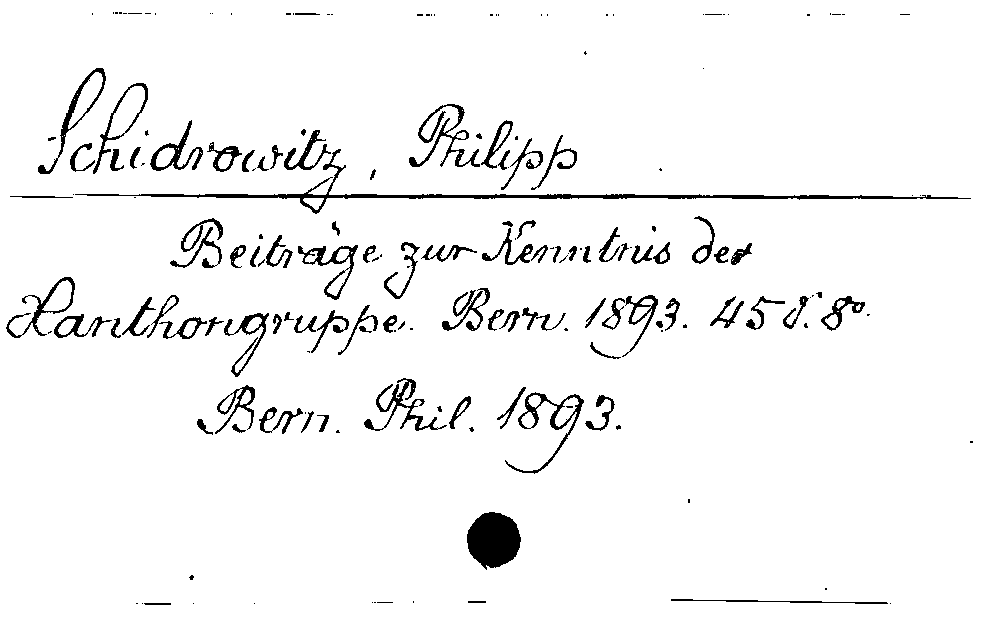 Schidrowitz, Philipp
Beiträge zur Kenntnis der
Xanthongruppe. Bern. 1893. 45 S. 8°.
Bern. Phil. 1893.